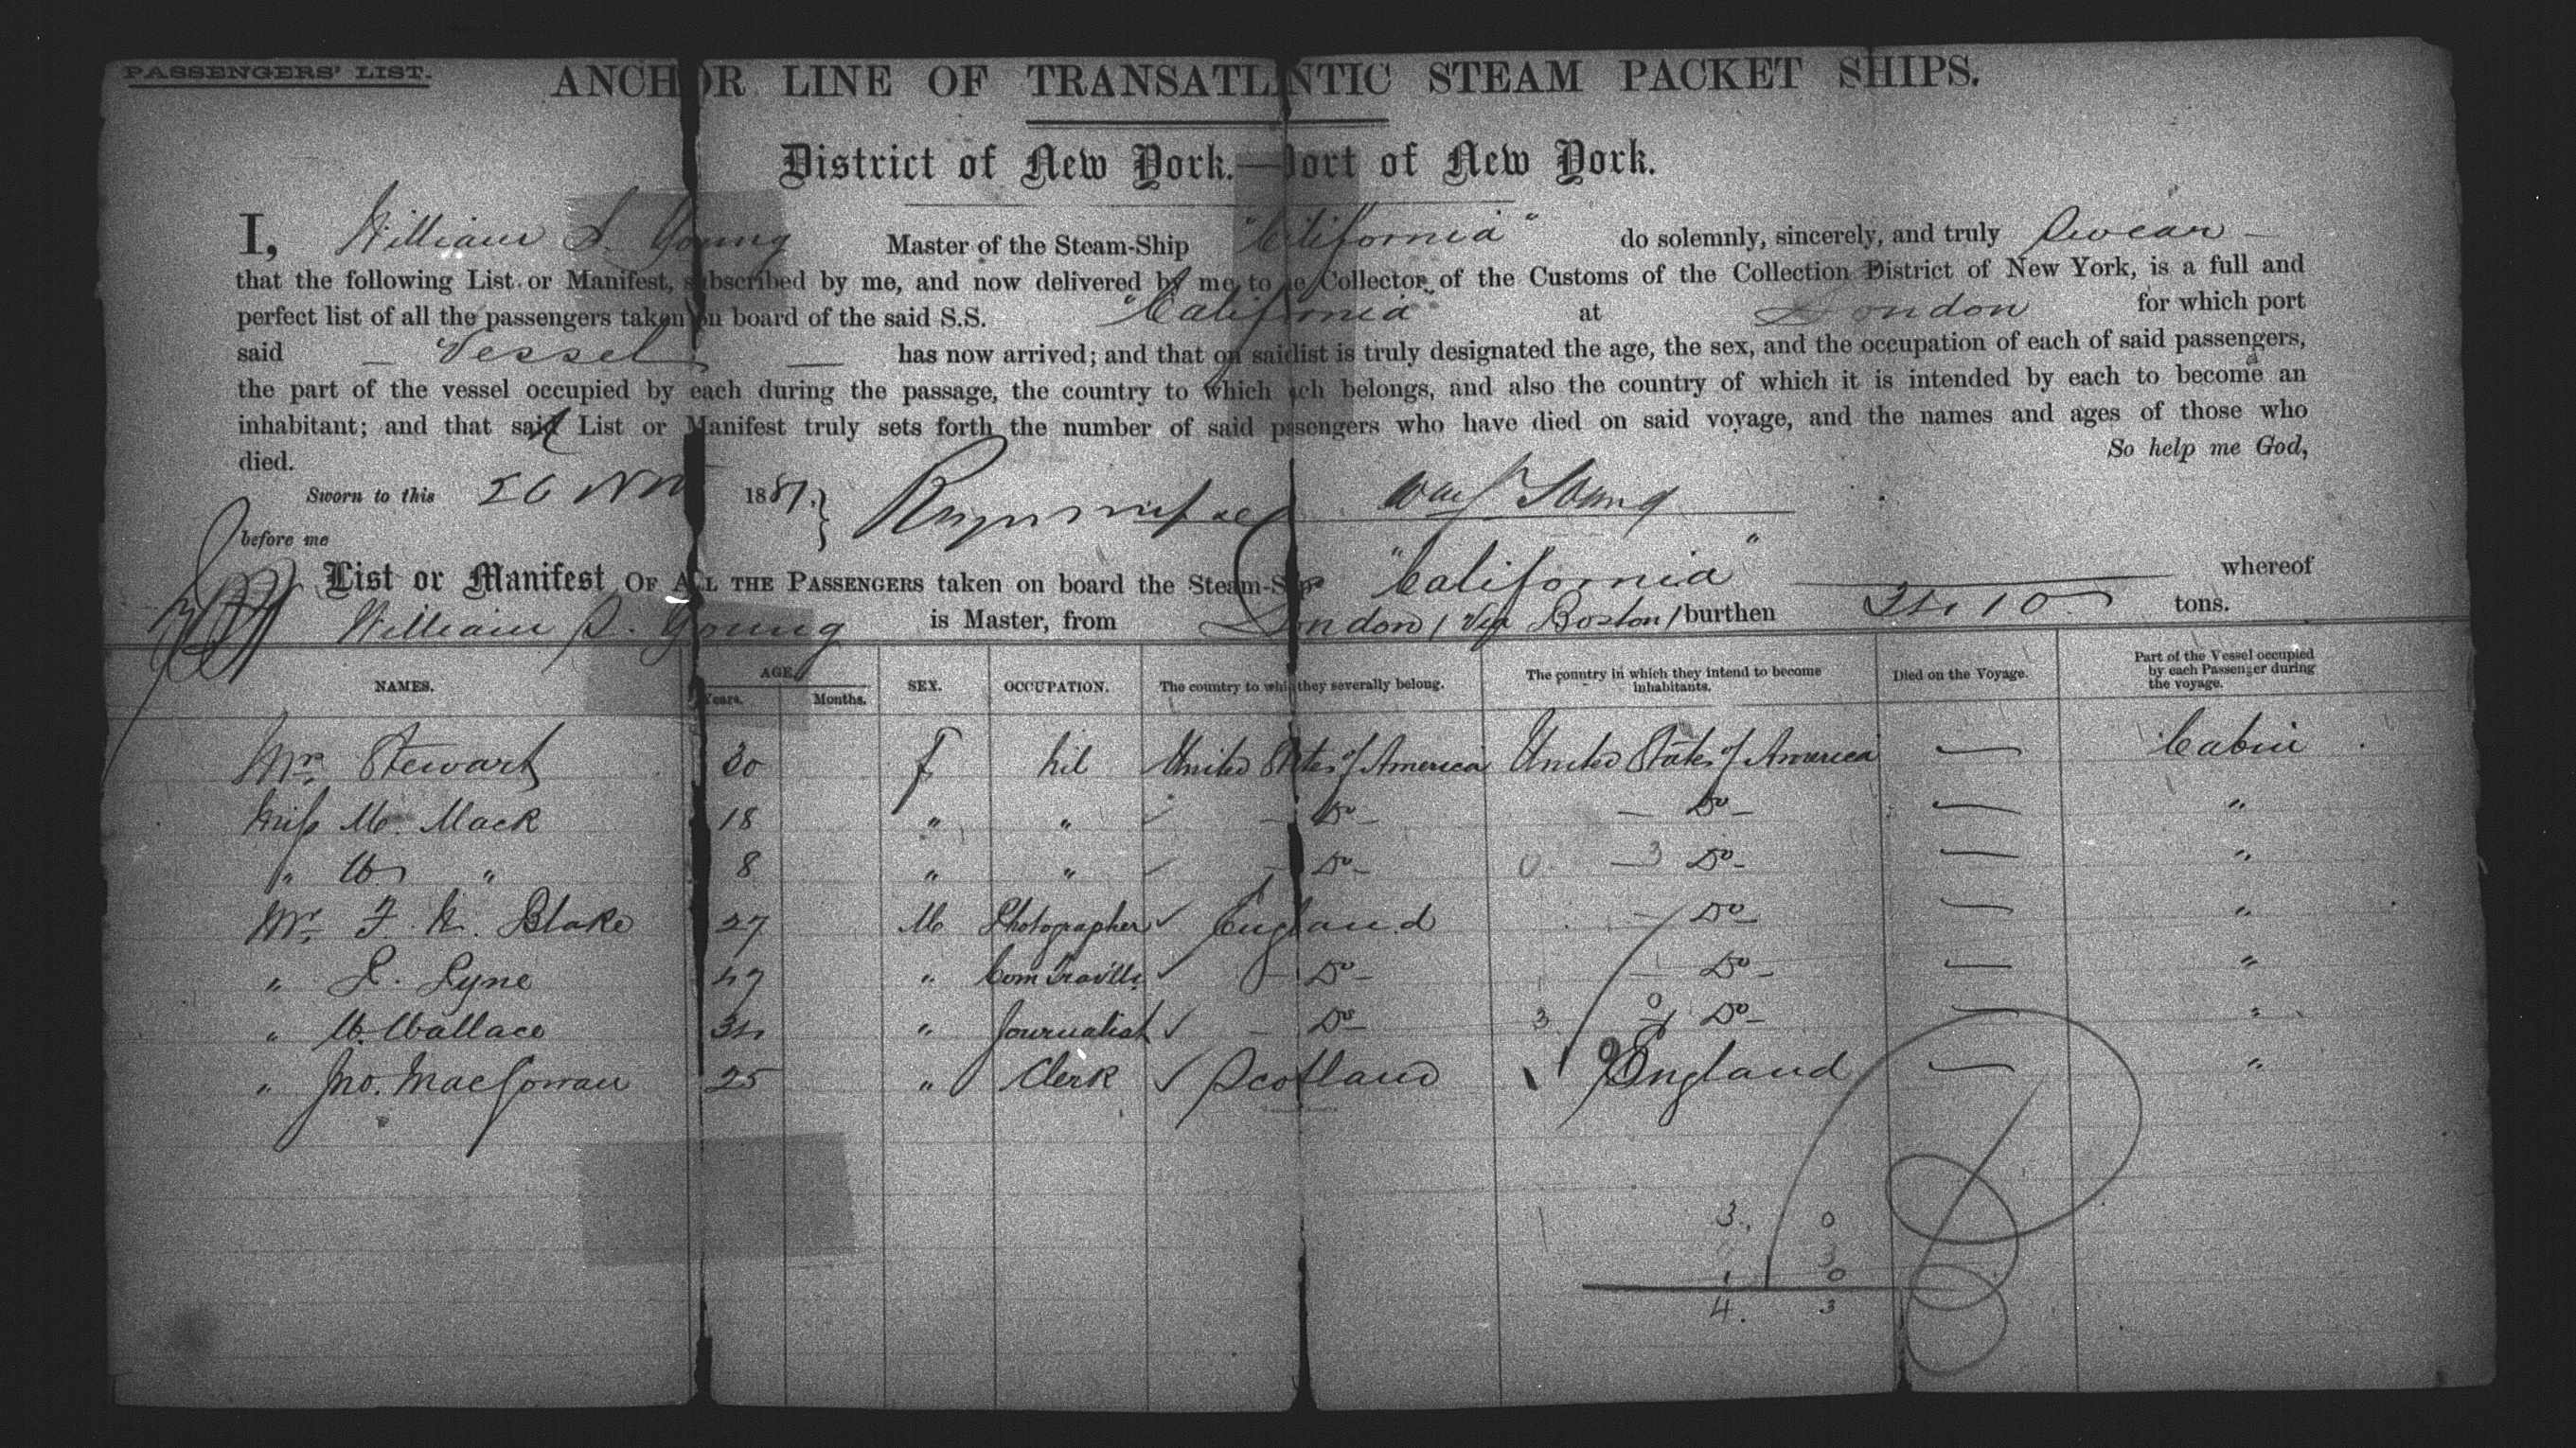 PASSENGERS' LIST.
ANCHOR LINE OF TRANSATLANTIC STEAM PACKET SHIPS.
District of New York.—Port of New York.
I, William S. Young Master of the Steam-Ship "California" do solemnly, sincerely, and truly Swear —
that the following List or Manifest, subscribed by me, and now delivered by me to the Collector of the Customs of the Collection District of New York, is a full and
perfect list of all the passengers taken on board of the said S.S. "California" at London for which port
said — Vessel — has now arrived; and that on said list is truly designated the age, the sex, and the occupation of each of said passengers,
the part of the vessel occupied by each during the passage, the country to which each belongs, and also the country of which it is intended by each to become an
inhabitant; and that said List or Manifest truly sets forth the number of said passengers who have died on said voyage, and the names and ages of those who
died. So help me God,
Sworn to this 26 Nov 1881. } Wm S Young
before me
List or Manifest OF ALL THE PASSENGERS taken on board the Steam-Ship "California" whereof
William S. Young is Master, from London / Via Boston / burthen 3410 tons.
NAMES. AGE. Years. Months. SEX. OCCUPATION. The country to which they severally belong. The country in which they intend to become inhabitants. Died on the Voyage. Part of the Vessel occupied by each Passenger during the voyage.
Mrs. Stewart 30 F. Nil United States of America United States of America — Cabin
Miss M. Mack 18 " " — Do — — Do — — "
" W. " 8 " " — Do — 0 3 — Do — — "
Mr. F. N. Blake 27 M Photographer England — Do — — "
" L. Lyne 47 " Com Traveller — Do — — Do — — "
" W. Wallace 34 " Journalist — Do — 3 0 Do — — "
" Jno. MacGowan 25 " Clerk Scotland England — "
3. 0
3
1 0
4. 3